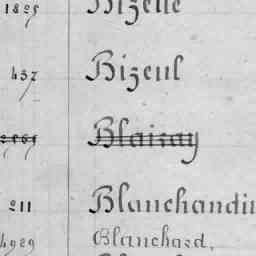 1895 Bizette
437 Bizeul
Blaizay
211 Blanchandin
4929 Blanchard,